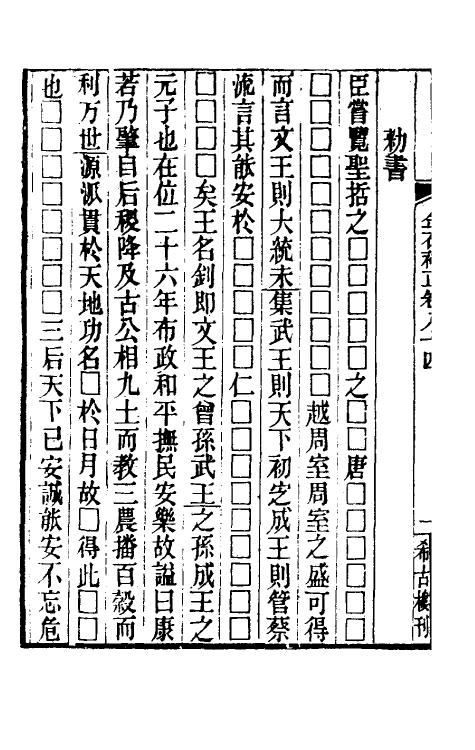 勑書
臣嘗覽聖哲之□□□□□之□□唐□□□□□□
□□□□□□□□□□□□越周室周室之盛可得
而言文王則大統未集武王則天下初㝎成王則管蔡
流言其能安於□□□□□□仁□□□□□□□□□
□□□□矣王名釗即文王之曾孫武王之孫成王之
元子也在位二十六年布政和平撫民安樂故謚曰康
若乃肇自后稷降及古公相九土而教三農播百穀而
利万世源派貫於天地功名□於日月故□得此□□
也□□□□□□□□三后天下已安誠能安不忘危
金石補正卷八十四
一
希古樓刊